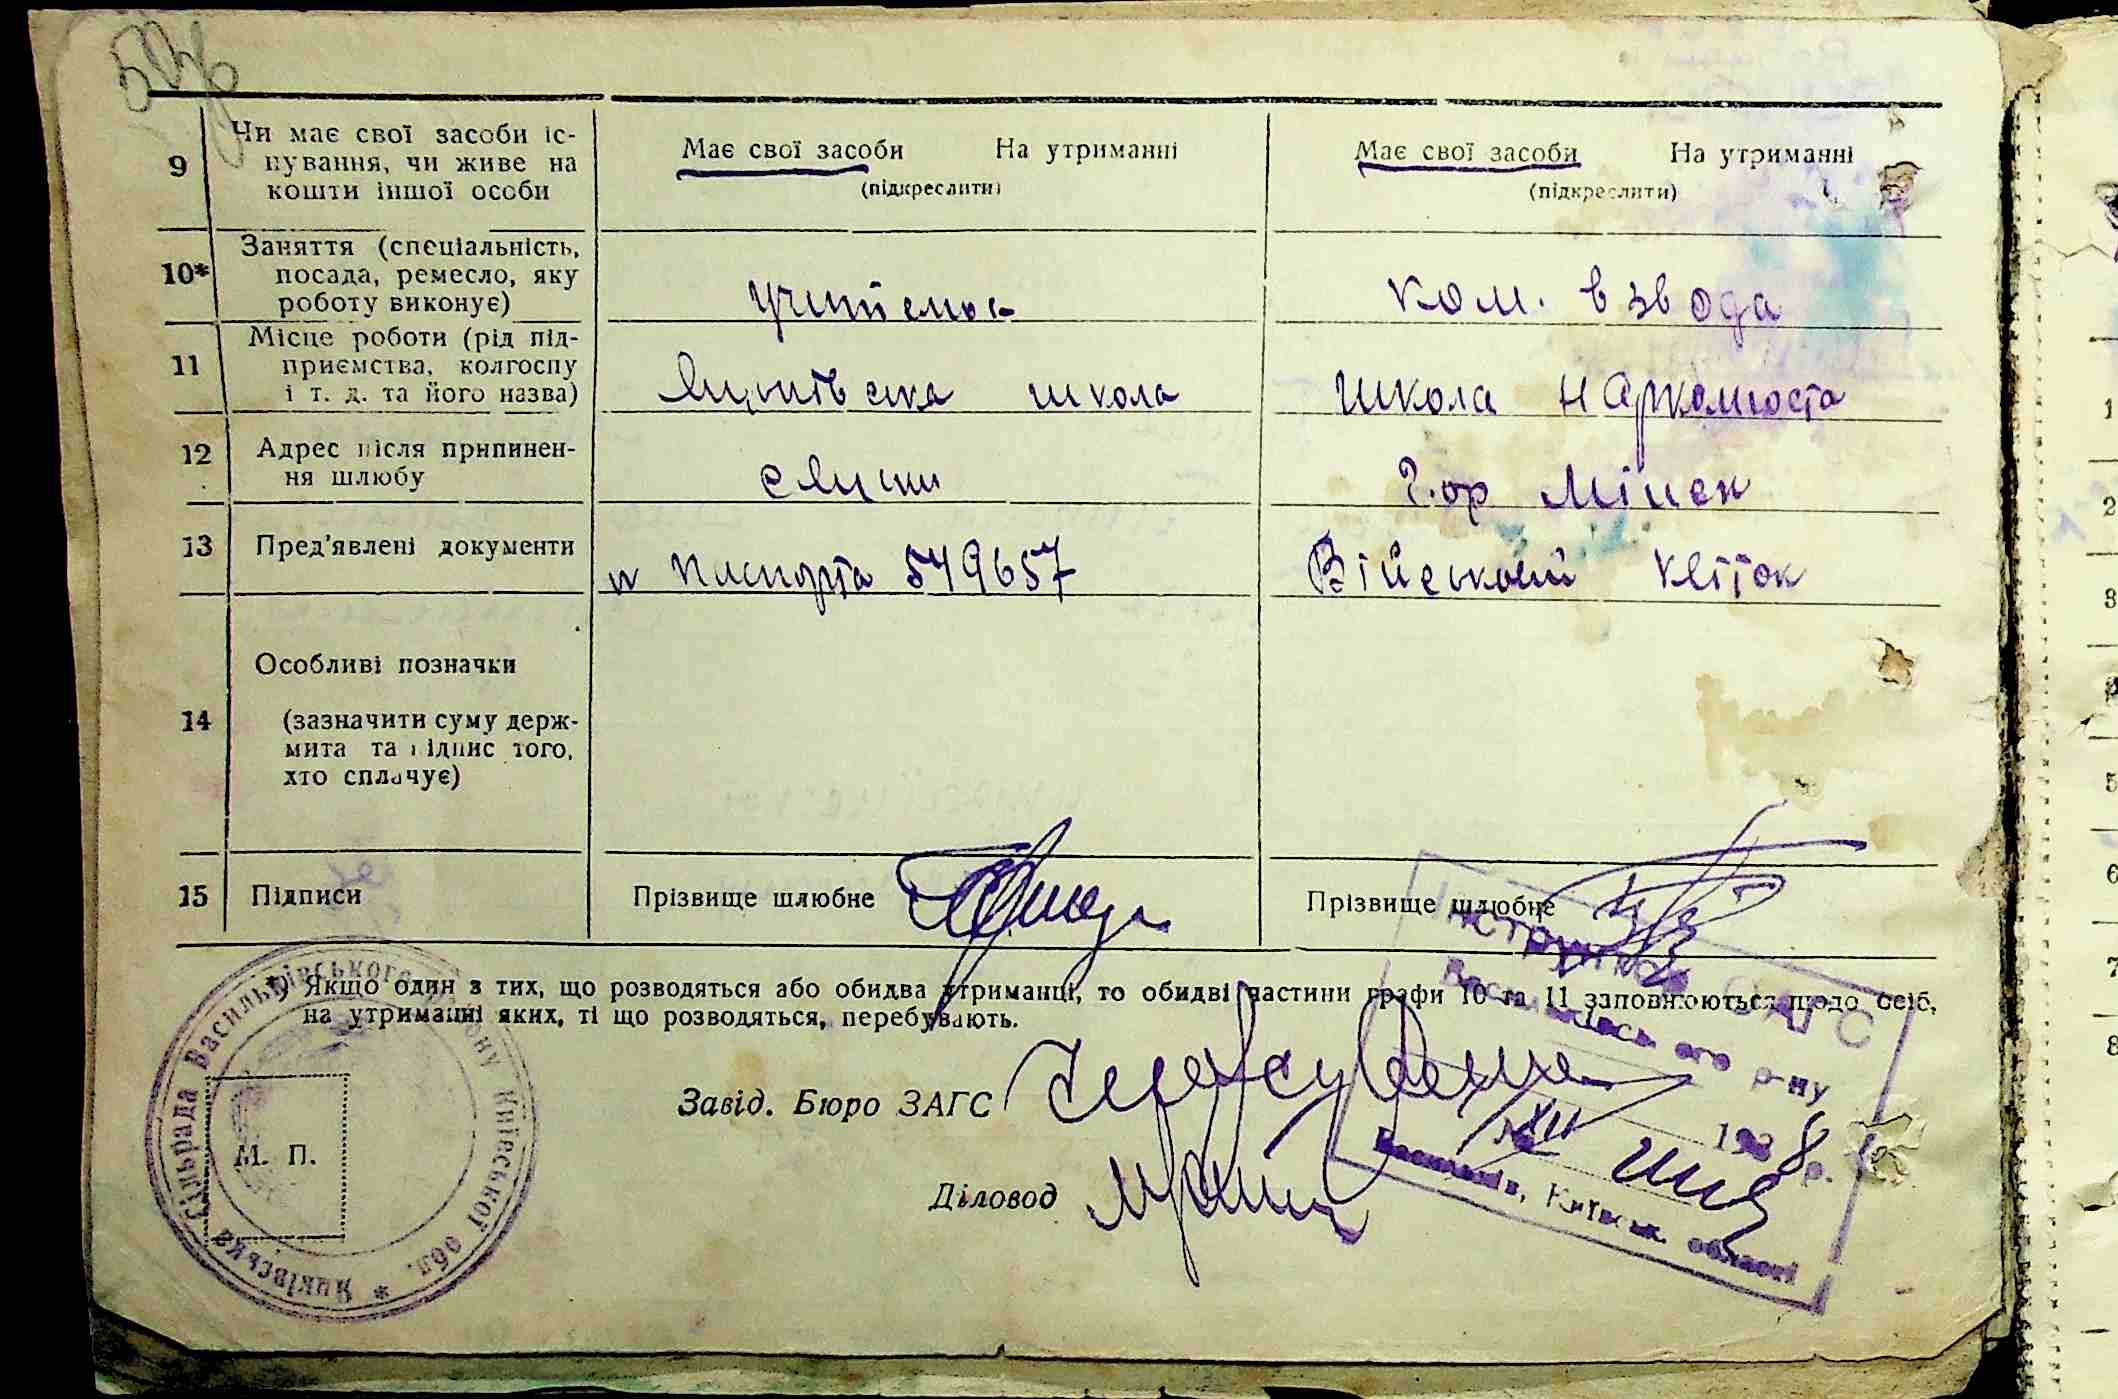 9 Чи має свої засоби іс-
нування, чи живе на
кошти іншої особи
Має свої засоби На утриманні
(підкреслити)
Має свої засоби На утриманні
(підкреслити)
10* Заняття (спеціальність,
посада, ремесло, яку
роботу виконує)
учитель
ком. взвода
11 Місце роботи (рід під-
приємства, колгоспу
і т. д. та його назва)
Яцьківська школа
школа
12 Адрес після припинен-
ня шлюбу
с Яцьки
Гор Мінск
13 Пред'явлені документи
паспорта 549657
Військовий квіток
14 Особливі позначки
(зазначити суму держ-
мита та підпис того,
хто сплачує)
15 Підписи
Прізвище шлюбне
Прізвище шлюбне
*) Якщо один з тих, що розводяться або обидва утриманці, то обидві частини графи 10 та 11 заповнюються щодо осіб,
на утриманні яких, ті що розводяться, перебувають.
Завід. Бюро ЗАГС
М. П.
Діловод
Яцківська Сільрада Васильківського району Київської обл. *
ЗАГС
Васильківського р-ну
XII 1938 р.
Васильків, Київськ. області